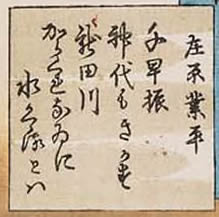 在原業平
千早振
神代もきかす
龍田川
からくれなゐに
水くゝるとハ